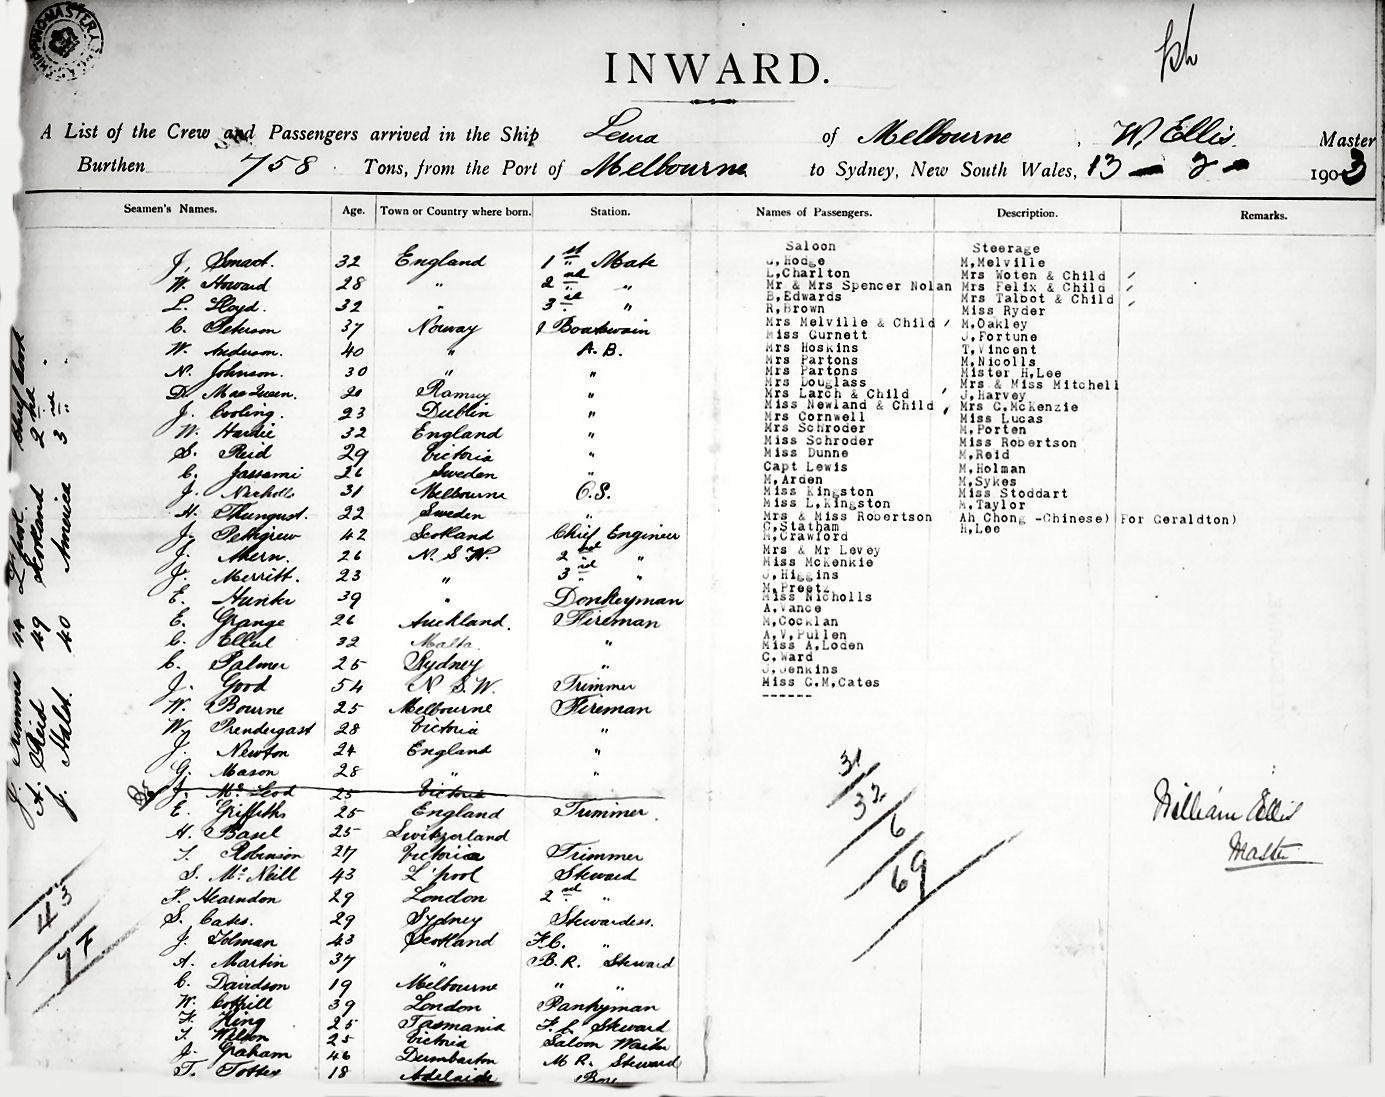 INWARD.
A List of the Crew and Passengers arrived in the Ship Lewa of Melbourne, W. Ellis. Master
Burthen 758 Tons, from the Port of Melbourne to Sydney, New South Wales, 13 - 2 - 1903
Seamen's Names. Age. Town or Country where born. Station.
J. Smart. 32 England 1st Mate
W. Howard 28 " 2nd "
L. Lloyd. 32 " 3rd "
C. Peterson 37 Norway Boatswain
W. Anderson. 40 " A.B.
N. Johnson. 30 " "
D. MacQueen. 20 Ramsey "
J. Cooling. 23 Dublin "
W. Hardie 32 England "
S. Reid 29 Victoria "
C. 26 Sweden "
J. Nicholls 31 Melbourne O.S.
H. 22 Sweden "
J. Pettigrew 42 Scotland Chief Engineer
J. Ahern. 26 N.S.W. 2nd "
J. Merritt. 23 " 3rd "
E. Hunter 39 " Donkeyman
E. Grange 26 Auckland. Fireman
C. Ellul 32 Malta. "
C. Palmer 25 Sydney "
J. Good 54 N.S.W. Trimmer
W. Bourne 25 Melbourne Fireman
W. Prendergast 28 Victoria "
J. Newton 24 England "
G. Mason 28 " "
J. McLeod 25 Victoria
E. Griffiths 25 England Trimmer.
H. Basel 25 Switzerland
T. Robinson 27 Victoria Trimmer
S. McNeill 43 L'pool Steward
F. Hearndon 29 London 2nd "
S. Cates. 29 Sydney Stewardess.
J. Tolman 43 Scotland F.C. "
A. Martin 37 " B.R. Steward
C. Davidson 19 Melbourne " "
W. Cottrill 39 London Pantryman
F. King 25 Tasmania F.C. Steward
T. Wilson 25 Victoria Saloon Waiter
J. Graham 46 Dumbarton M.R. Steward
T. 18 Adelaide Boy
J. Simmes 44 L'pool. Chief Cook
A. Reid 49 Scotland 2nd "
J. Halst. 40 America 3rd "
43
77
Names of Passengers. Description. Remarks.
Saloon
J,Hodge
L,Charlton
Mr & Mrs Spencer Nolan
B,Edwards
R,Brown
Mrs Melville & Child
Miss Gurnett
Mrs Hoskins
Mrs Partons
Mrs Partons
Mrs Douglass
Mrs Larch & Child
Miss Newland & Child
Mrs Cornwell
Mrs Schroder
Miss Schroder
Miss Dunne
Capt Lewis
M,Arden
Miss Kingston
Miss L,Kingston
Mrs & Miss Robertson
C,Statham
M,Crawford
Mrs & Mr Levey
Miss McKenkie
J,Higgins
M,Preetz
Miss Nicholls
A,Vance
M,Cocklan
A,V,Pullen
Miss A,Loden
C,Ward
J,Jenkins
Miss G.M,Cates
------
Steerage
M,Melville
Mrs Woten & Child
Mrs Felix & Child
Mrs Talbot & Child
Miss Ryder
M,Oakley
J,Fortune
T,Vincent
M,Nicolls
Mister H,Lee
Mrs & Miss Mitchell
J,Harvey
Mrs C,McKenzie
Miss Lucas
M,Porten
Miss Robertson
M,Reid
M,Holman
M,Sykes
Miss Stoddart
M,Taylor
Ah Chong -Chinese) For Geraldton)
H,Lee
31
32
6
69
William Ellis
Master